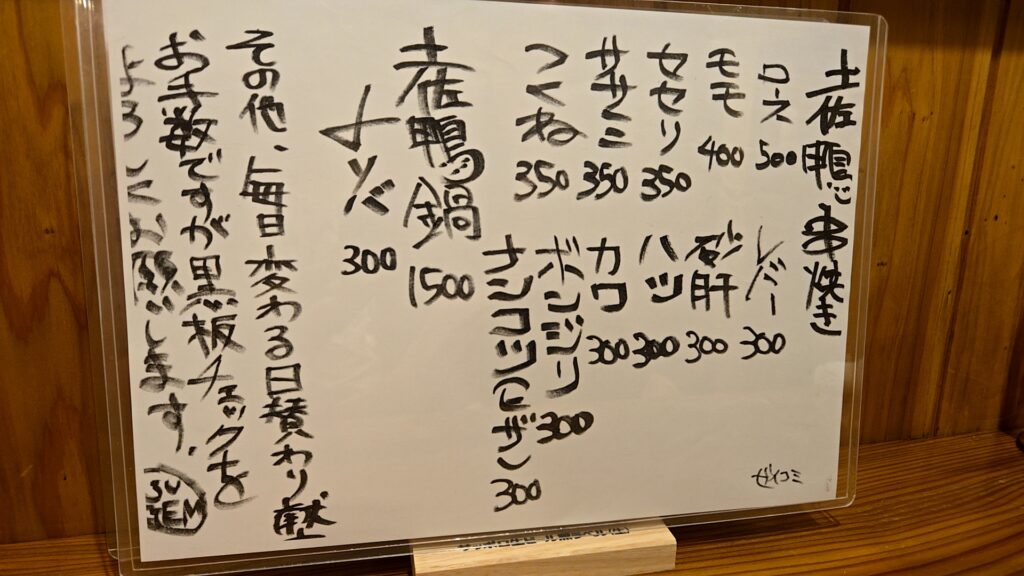 土佐鴨 串焼き
ロース 500
レバー 300
モモ 400
砂肝 300
セセリ 350
ハツ 300
ササミ 350
カワ 300
つくね 350
ボンジリ 300
ナンコツ 300
土佐鴨鍋 1500
〆ソバ 300
その他、毎日変わる日替わり
お手数ですが黒板チェックを
よろしくお願いします。
ゼイコミ